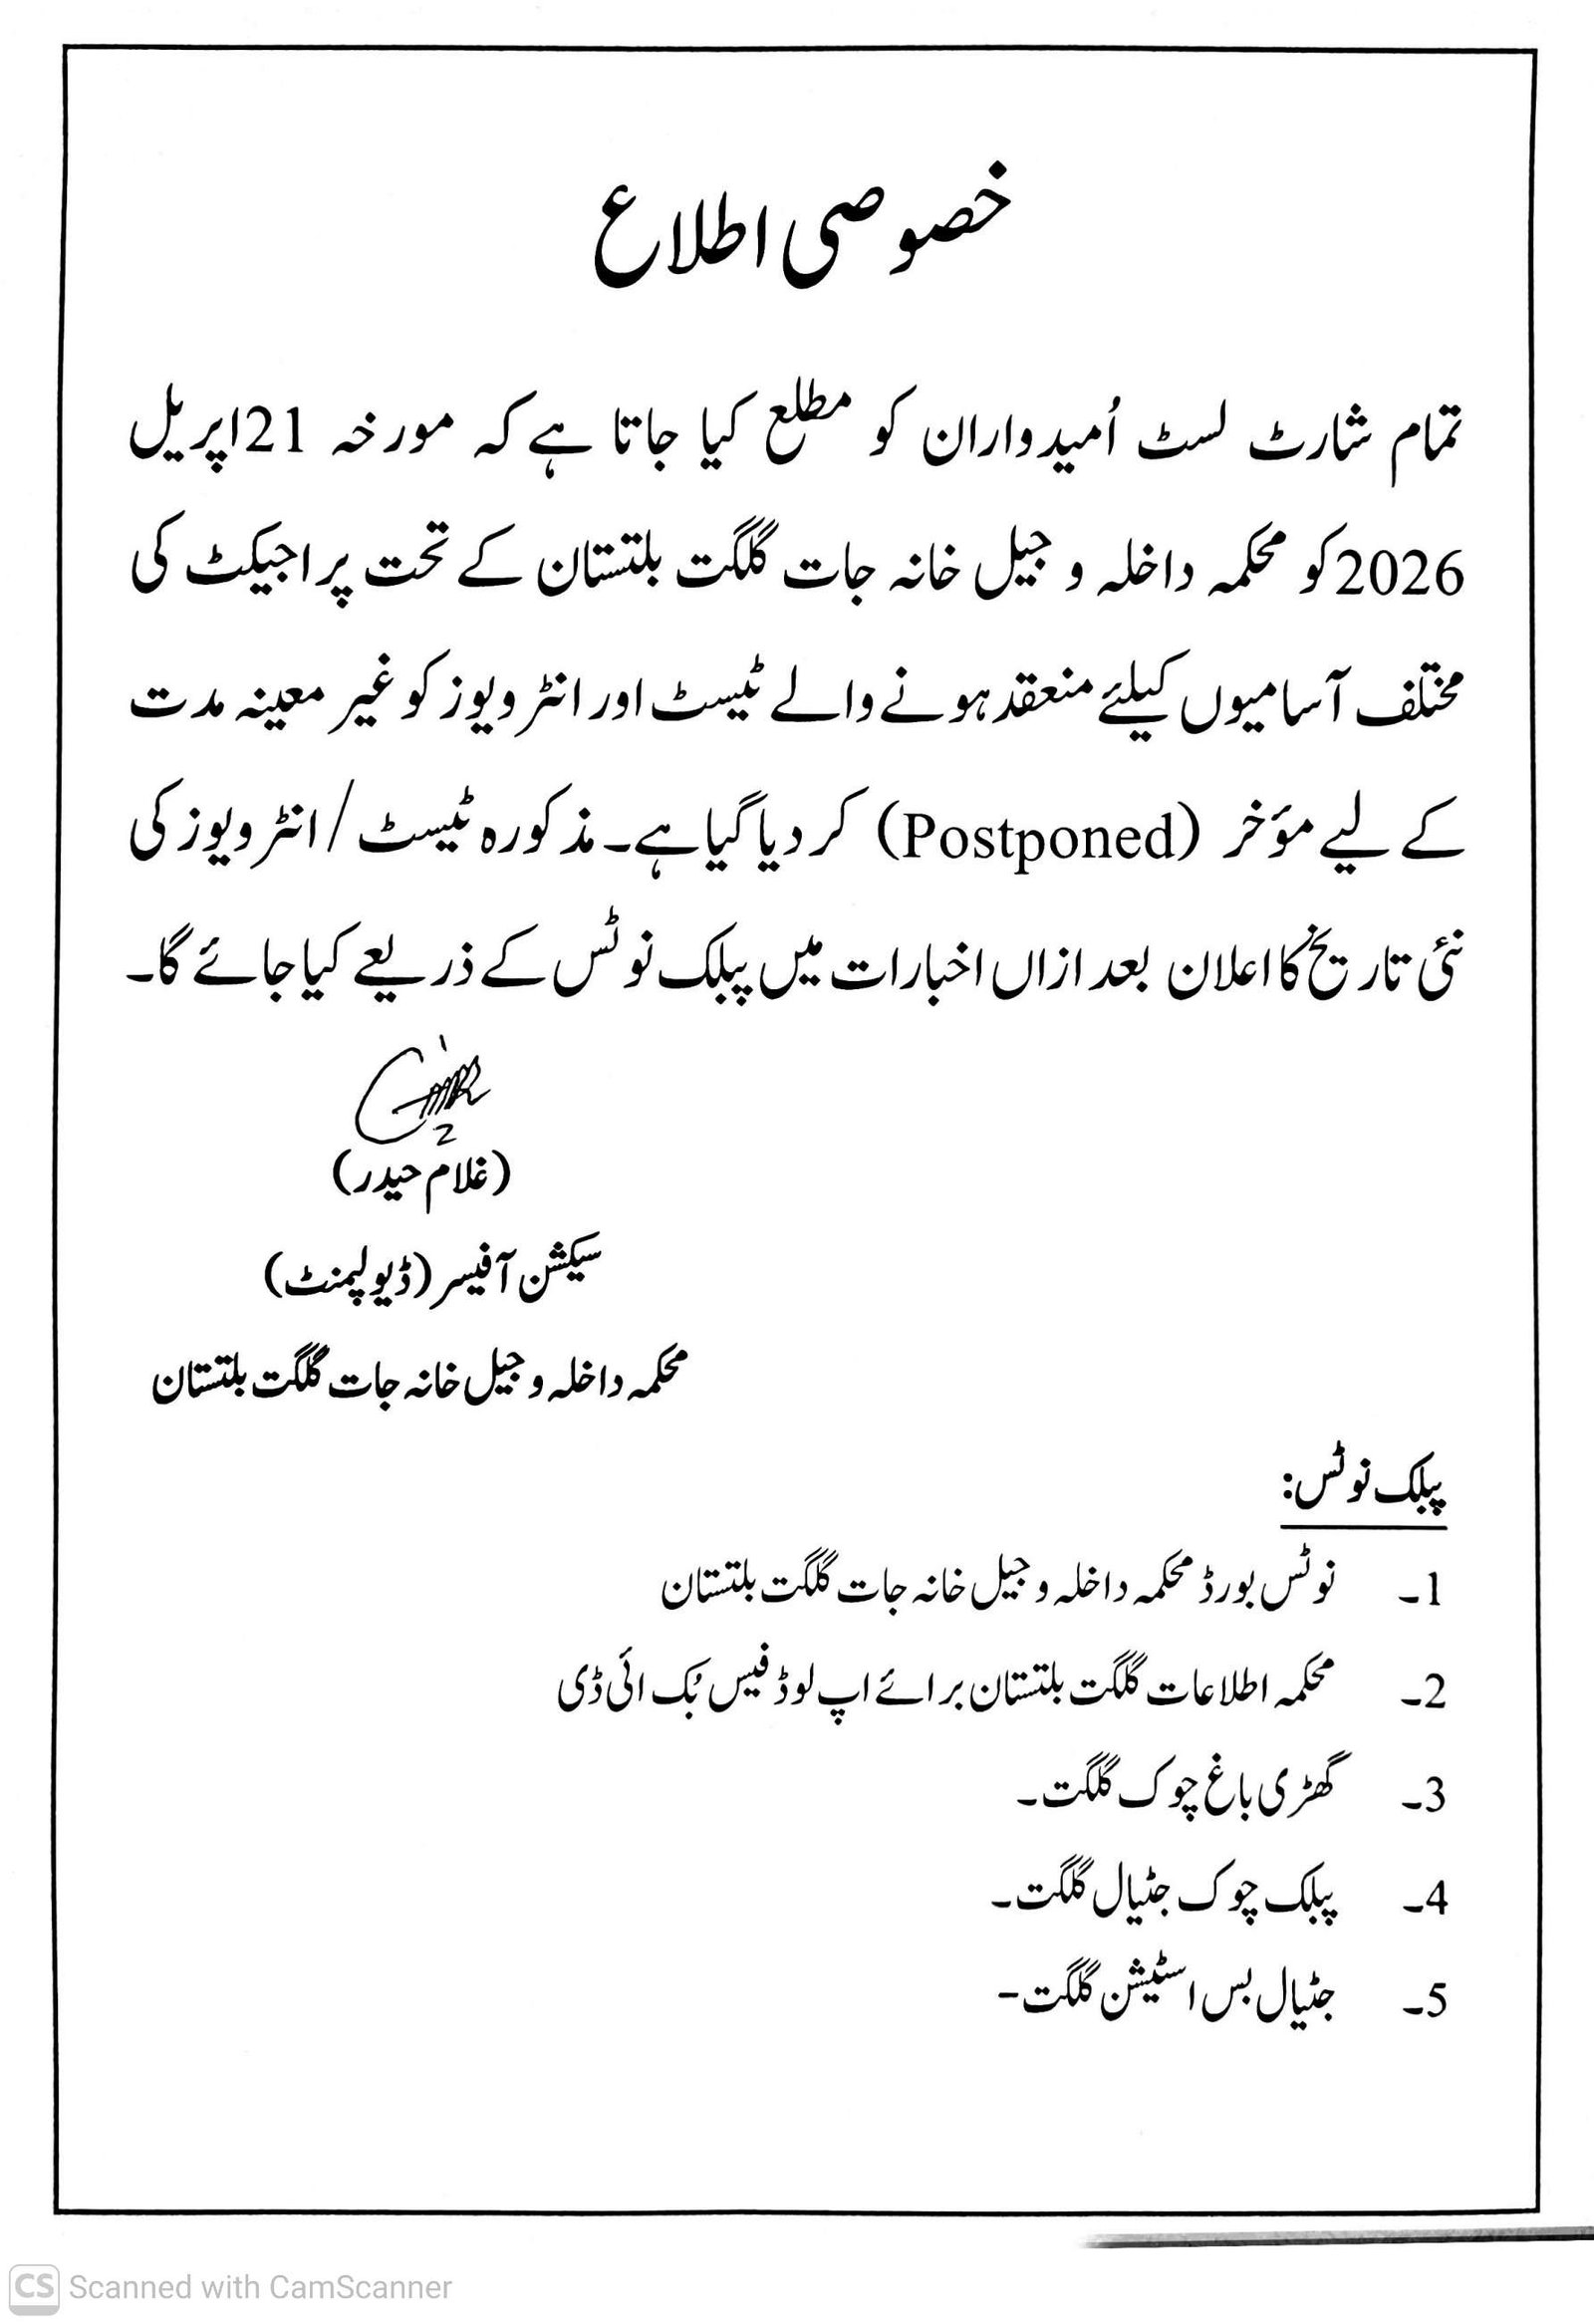 خصوصی اطلاع
تمام شارٹ لسٹ اُمیدواران کو مطلع کیا جاتا ہے کہ مورخہ 21اپریل
2026کو محکمہ داخلہ و جیل خانہ جات گلگت بلتستان کے تحت پراجیکٹ کی
مختلف آسامیوں کیلئے منعقد ہونے والے ٹیسٹ اور انٹرویوز کو غیر معینہ مدت
کے لیے مؤخر (Postponed) کر دیا گیا ہے۔ مذکورہ ٹیسٹ/انٹرویوز کی
نئی تاریخ کا اعلان بعد ازاں اخبارات میں پبلک نوٹس کے ذریعے کیا جائے گا۔
(غلام حیدر)
سیکشن آفیسر (ڈیولپمنٹ)
محکمہ داخلہ و جیل خانہ جات گلگت بلتستان
پبلک نوٹس:
1۔ نوٹس بورڈ محکمہ داخلہ و جیل خانہ جات گلگت بلتستان
2۔ محکمہ اطلاعات گلگت بلتستان برائے اپ لوڈ فیس بُک ائی ڈی
3۔ گھڑی باغ چوک گلگت۔
4۔ پبلک چوک جٹیال گلگت۔
5۔ جٹیال بس اسٹیشن گلگت-
CS Scanned with CamScanner